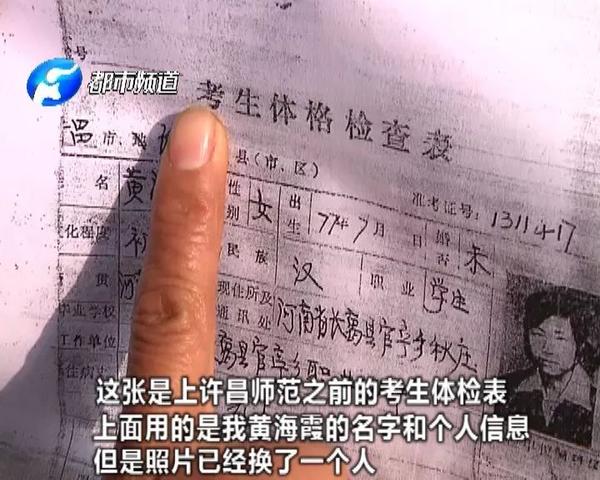 号
都市频道
考生体格检查表
市、 县(市、区)
准考证号:1311417
名 黄 性别 女 出生 77年7月 日 婚否 未
化程度 初 民族 汉 职业 学生
贯 河 现住所及通讯处 河南省长葛县官亭乡秋庄
毕业学校
工作单位 葛县官亭乡职
这张是上许昌师范之前的考生体检表
上面用的是我黄海霞的名字和个人信息
但是照片已经换了一个人